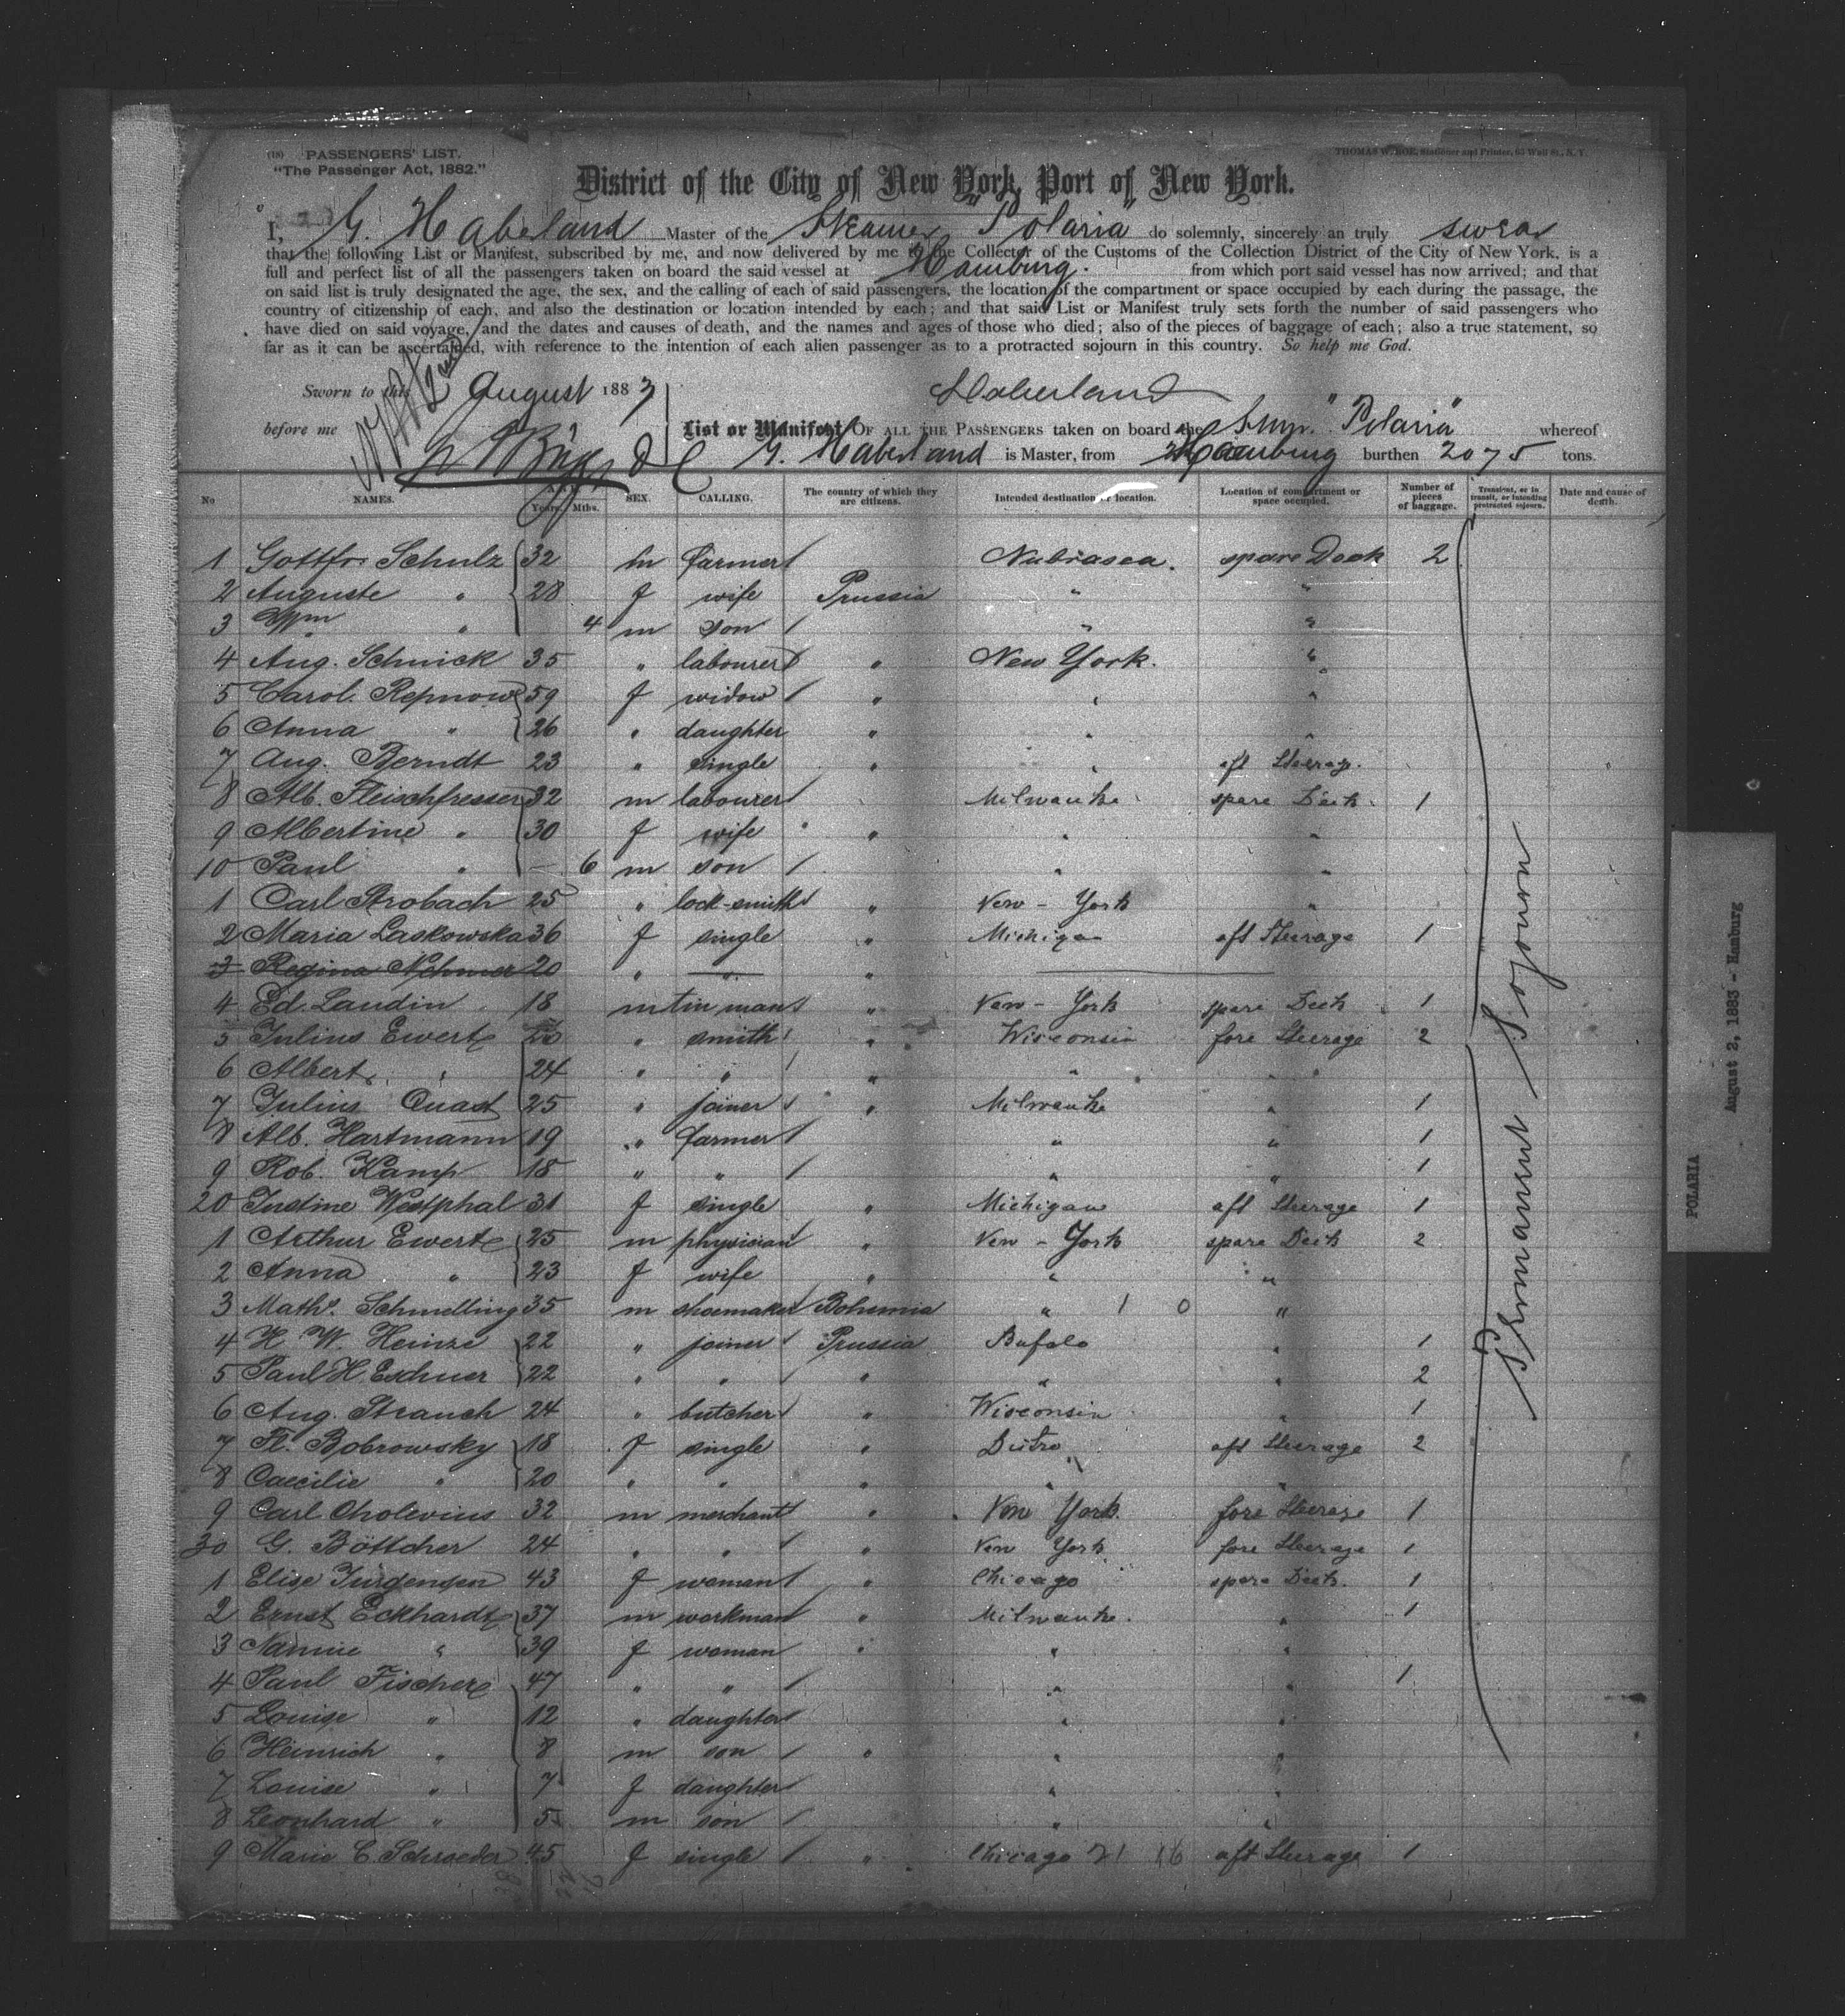 (18) PASSENGERS' LIST.
"The Passenger Act, 1882."
THOMAS W. ROE, Stationer and Printer, 63 Wall St., N.Y.
District of the City of New York, Port of New York.
I, G. Haberland Master of the Steamer "Polaria" do solemnly, sincerely an truly swear
that the following List or Manifest, subscribed by me, and now delivered by me to the Collector of the Customs of the Collection District of the City of New York, is a
full and perfect list of all the passengers taken on board the said vessel at Hamburg. from which port said vessel has now arrived; and that
on said list is truly designated the age, the sex, and the calling of each of said passengers, the location of the compartment or space occupied by each during the passage, the
country of citizenship of each, and also the destination or location intended by each; and that said List or Manifest truly sets forth the number of said passengers who
have died on said voyage, and the dates and causes of death, and the names and ages of those who died; also of the pieces of baggage of each; also a true statement, so
far as it can be ascertained, with reference to the intention of each alien passenger as to a protracted sojourn in this country. So help me God.
Sworn to this 2nd August 1883 Haberland
before me List or Manifest OF ALL THE PASSENGERS taken on board the Stmr. "Polaria" whereof
G. Haberland is Master, from Hamburg burthen 2075 tons.
No NAMES. AGE Years. Mths. SEX. CALLING. The country of which they are citizens. Intended destination or location. Location of compartment or space occupied. Number of pieces of baggage. Transient, or in transit, or intending protracted sojourn. Date and cause of death.
1 Gottfr. Schulz 32 m farmer Nubrasca. spare Deck 2
2 Auguste " 28 f wife Prussia " "
3 Wm " 4 m son " "
4 Aug. Schnick 35 " labourer " New York. "
5 Carol. Repnow 59 f widow " " "
6 Anna " 26 " daughter " " "
7 Aug. Berndt 23 " single " " aft Steerag.
8 Alb. Fleischfresser 32 m labourer Milwauke spare Deck 1
9 Albertine " 30 f wife " " "
10 Paul " — 6 m son " "
1 Carl Strobach 25 " lock-smith " New-York "
2 Maria Laskowska 36 f single " Michigan aft Steerage 1
3 Regina Nehmer 20 " " "
4 Ed. Landin 18 m tin man " New-York spare Deck 1
5 Julius Ewert 20 " smith " Wisconsin fore Steerage 2
6 Albert " 24 " " " " "
7 Julius Quast 25 " joiner " Milwauke " 1
8 Alb. Hartmann 19 " farmer " " 1
9 Rob. Kamp 18 " " " " 1
20 Justine Westphal 31 f single " Michigan aft Steerage 1
1 Arthur Ewert 25 m physician " New-York spare Deck 2
2 Anna " 23 f wife " " "
3 Maths. Schmelling 35 m shoemaker Bohemia " 1 0 "
4 H. W. Heinze 22 " joiner Prussia Bufalo " 1
5 Paul H. Eschner 22 " " " " " 2
6 Aug. Strauch 24 " butcher " Wisconsin " 1
7 Fl. Bobrowsky 18 f single " Ditro aft Steerage 2
8 Caecilie " 20 " " " " "
9 Carl Cholevius 32 m merchant " New York. fore Steerage 1
30 G. Böttcher 24 " " " New York fore Steerage 1
1 Elise Jürgensen 43 f woman " Chicago spare Deck. 1
2 Ernst Eckhardt 37 m workman " Milwauke. " 1
3 Nannie " 39 f woman " " "
4 Paul Fischer 47 " " " " 1
5 Louise " 12 " daughter " "
6 Heinrich " 8 m son " " "
7 Louise " 7 f daughter " "
8 Leonhard " 5 m son " "
9 Marie C. Schroeder 45 f single " Chicago 21 16 aft Steerage 1
Permanent Sojourn
POLARIA August 2, 1883 - Hamburg